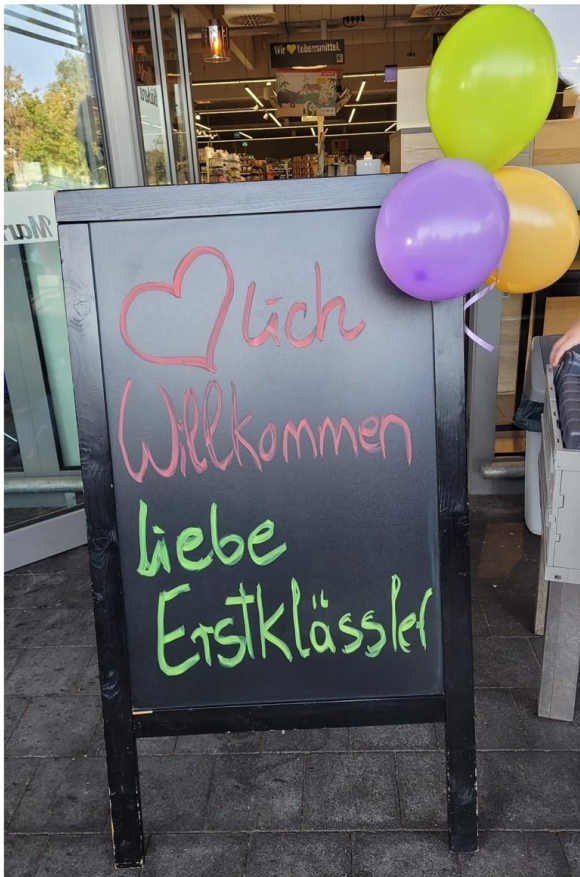 Wir ♥ Lebensmittel.
Mar
♥lich
Willkommen
liebe
Erstklässler